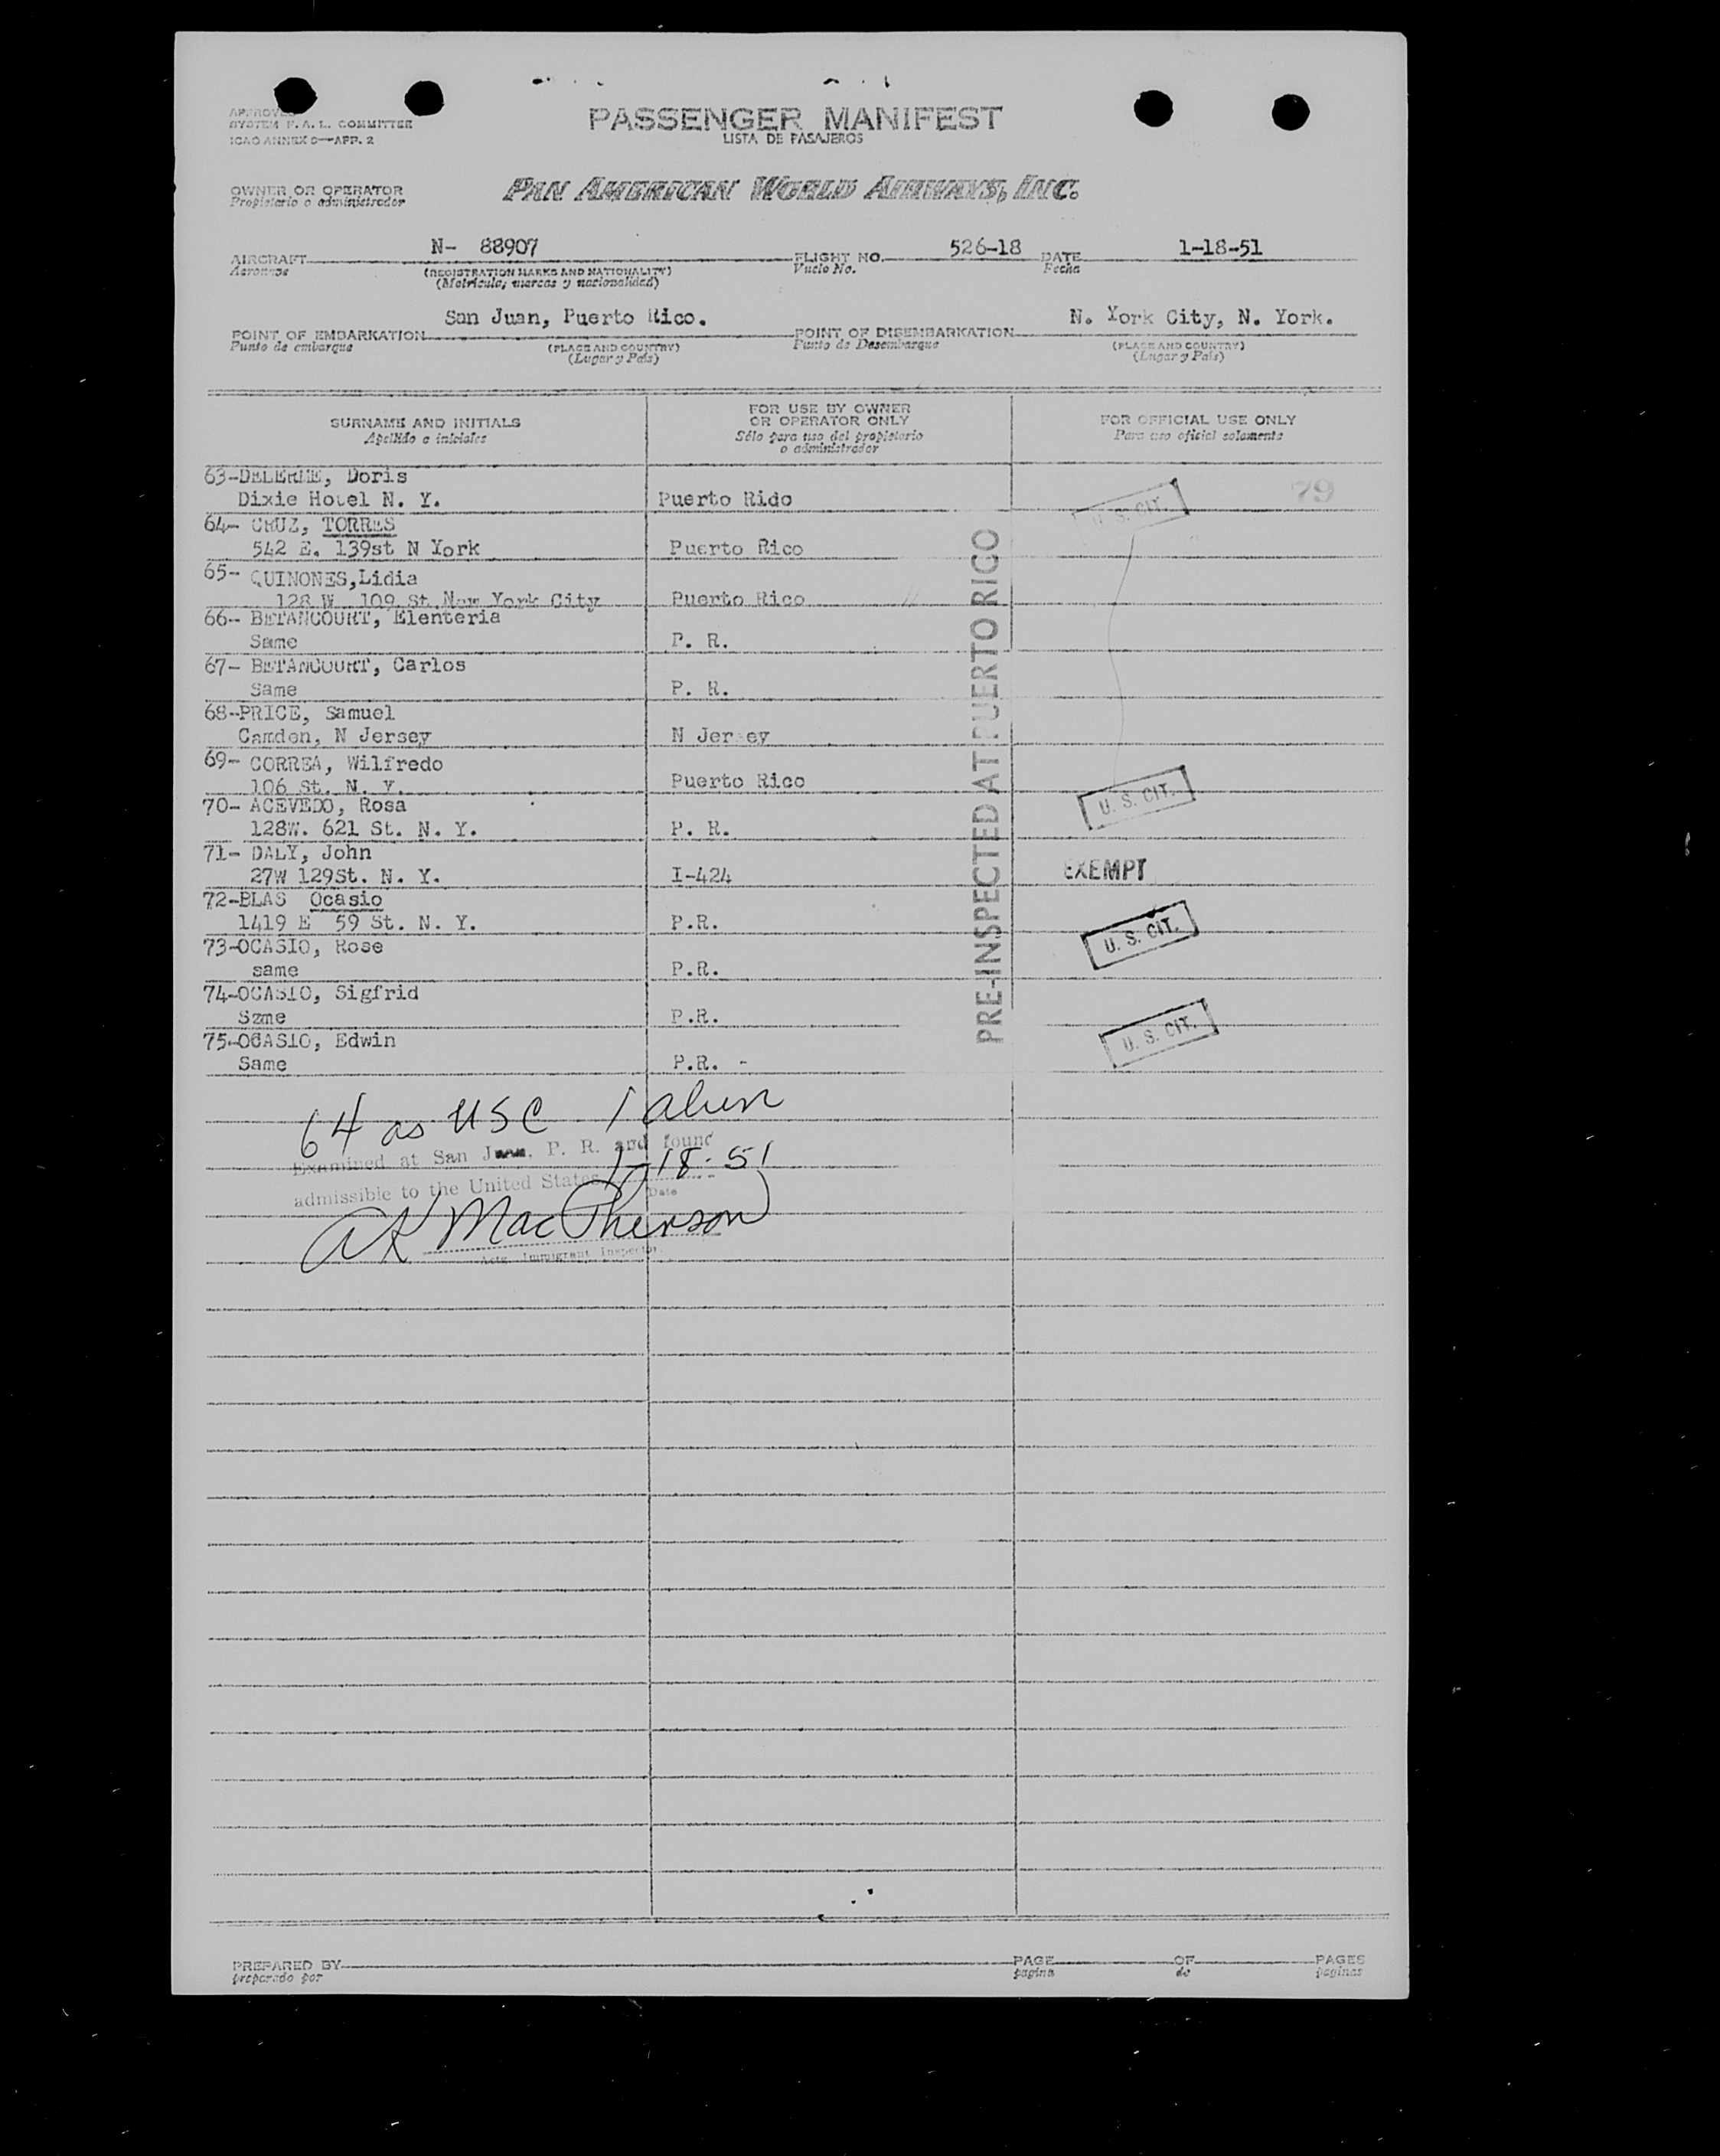 APPROVED
SYSTEM F. A. L. COMMITTEE
ICAO ANNEX 9—APP. 2
PASSENGER MANIFEST
LISTA DE PASAJEROS
OWNER OR OPERATOR
Propietario o administrador
PAN AMERICAN WORLD AIRWAYS, INC.
AIRCRAFT N- 88907 FLIGHT NO. 526-18 DATE 1-18-51
Aeronave (REGISTRATION MARKS AND NATIONALITY) Vuelo No. Fecha
(Matricula, marcas y nacionalidad)
POINT OF EMBARKATION San Juan, Puerto Rico. POINT OF DISEMBARKATION N. York City, N. York.
Punto de embarque (PLACE AND COUNTRY) Punto de Desembarque (PLACE AND COUNTRY)
(Lugar y País) (Lugar y País)
SURNAME AND INITIALS
Apellido e iniciales
FOR USE BY OWNER
OR OPERATOR ONLY
Sólo para uso del propietario
o administrador
FOR OFFICIAL USE ONLY
Para uso oficial solamente
63-DELERME, Doris
Dixie Hotel N. Y. Puerto Rido U. S. CIT. 79
64- CRUZ, TORRES
542 E. 139st N York Puerto Rico
65- QUINONES,Lidia
128 W 109 St.New York City Puerto Rico
66- BETANCOURT, Elenteria
Same P. R.
67- BETANCOURT, Carlos
Same P. R.
68-PRICE, Samuel
Camden, N Jersey N Jersey
69- CORREA, Wilfredo
106 St. N. Y. Puerto Rico U. S. CIT.
70- ACEVEDO, Rosa
128W. 621 St. N. Y. P. R.
71- DALY, John
27W 129St. N. Y. I-424 EXEMPT
72-BLAS Ocasio
1419 E 59 St. N. Y. P.R. U. S. CIT.
73-OCASIO, Rose
same P.R.
74-OCASIO, Sigfrid
Szme P.R.
75-OCASIO, Edwin U. S. CIT.
Same P.R. -
PRE-INSPECTED AT PUERTO RICO
64 as USC 1 alien
Examined at San Juan, P. R. and found
1-18-51
admissible to the United States
Date
AK MacPherson
Actg. Immigrant Inspector.
PREPARED BY PAGE OF PAGES
preparado por pagina de paginas